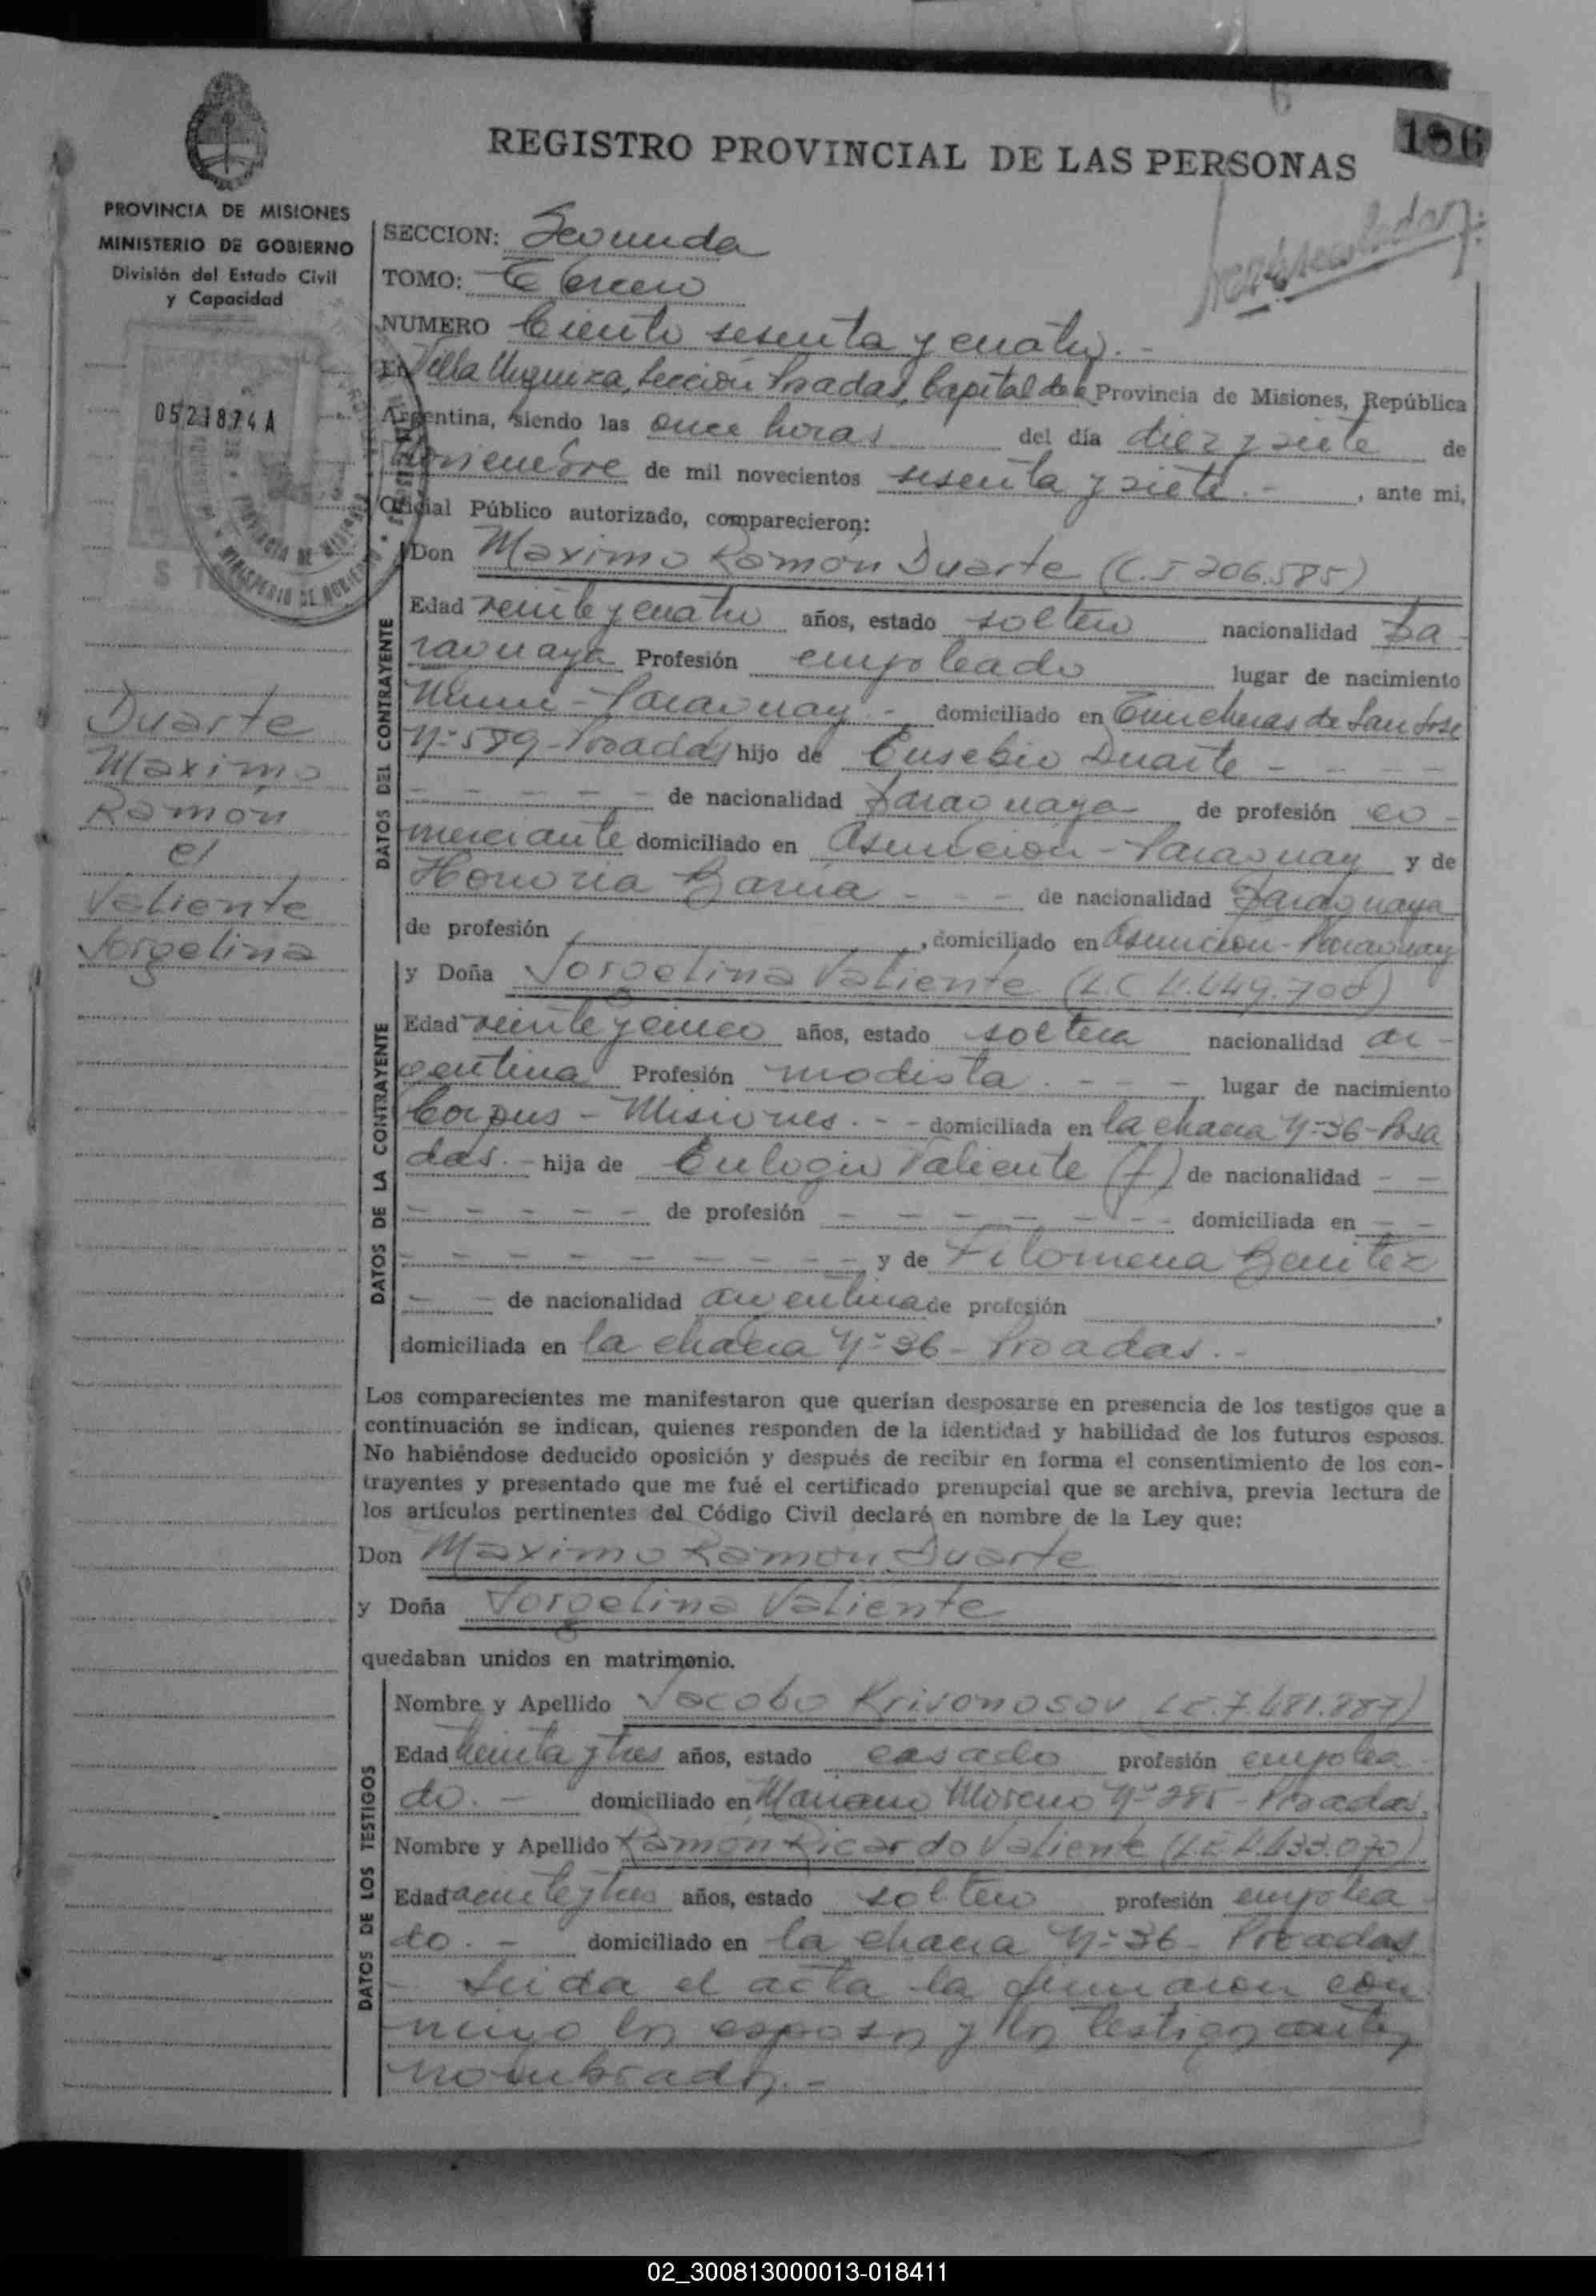 186
REGISTRO PROVINCIAL DE LAS PERSONAS
PROVINCIA DE MISIONES
MINISTERIO DE GOBIERNO
División del Estado Civil
y Capacidad
0521874 A
SECCION: Segunda
TOMO: Tercero
NUMERO Ciento sesenta y cuatro.-
En Villa Urquiza, Sección Posadas, Capital de la Provincia de Misiones, República
Argentina, siendo las once horas del día diez y siete de
Noviembre de mil novecientos sesenta y siete.- , ante mi,
Oficial Público autorizado, comparecieron:
DATOS DEL CONTRAYENTE
Don Maximo Ramón Duarte (C.I 206.585)
Edad veinte y cuatro años, estado soltero nacionalidad pa-
raguaya Profesión empleado lugar de nacimiento
- Paraguay.- domiciliado en Trincheras de San José
Nº 589-Posadas hijo de Eusebio Duarte - - - -
- - - - - de nacionalidad paraguaya de profesión co-
merciante domiciliado en Asunción-Paraguay y de
Honoria Baria - - - de nacionalidad paraguaya
de profesión , domiciliado en Asunción-Paraguay
DATOS DE LA CONTRAYENTE
y Doña Jorgelina Valiente (L.C 4.449.700)
Edad veinte y cinco años, estado soltera nacionalidad ar-
gentina Profesión modista. - - - lugar de nacimiento
Corpus - Misiones. - - domiciliada en la chacra Nº 36-Posa
das.- hija de Eulogio Valiente (f) de nacionalidad - -
- - - - - de profesión - - - - - - - domiciliada en - -
- - - - - - - - - y de Filomena Benitez
- - de nacionalidad argentina de profesión ,
domiciliada en la chacra Nº 36- Posadas.-
Los comparecientes me manifestaron que querían desposarse en presencia de los testigos que a
continuación se indican, quienes responden de la identidad y habilidad de los futuros esposos.
No habiéndose deducido oposición y después de recibir en forma el consentimiento de los con-
trayentes y presentado que me fué el certificado prenupcial que se archiva, previa lectura de
los artículos pertinentes del Código Civil declaré en nombre de la Ley que:
Don Maximo Ramón Duarte
y Doña Jorgelina Valiente
quedaban unidos en matrimonio.
DATOS DE LOS TESTIGOS
Nombre y Apellido Jacobo Krivonosov L.E.7.481.887)
Edad treinta y tres años, estado casado profesión emplea-
do.- domiciliado en Mariano Moreno Nº 285-Posadas.
Nombre y Apellido Ramón Ricardo Valiente (L.E 4.433.070)
Edad veinte y tres años, estado soltero profesión emplea-
do.- domiciliado en la chacra Nº 36- Posadas
- Leida el acta la firmaron con
migo los esposos y los testigos antes
nombrados.-
Duarte
Maximo
Ramón
c/
Valiente
Jorgelina
02_300813000013-018411